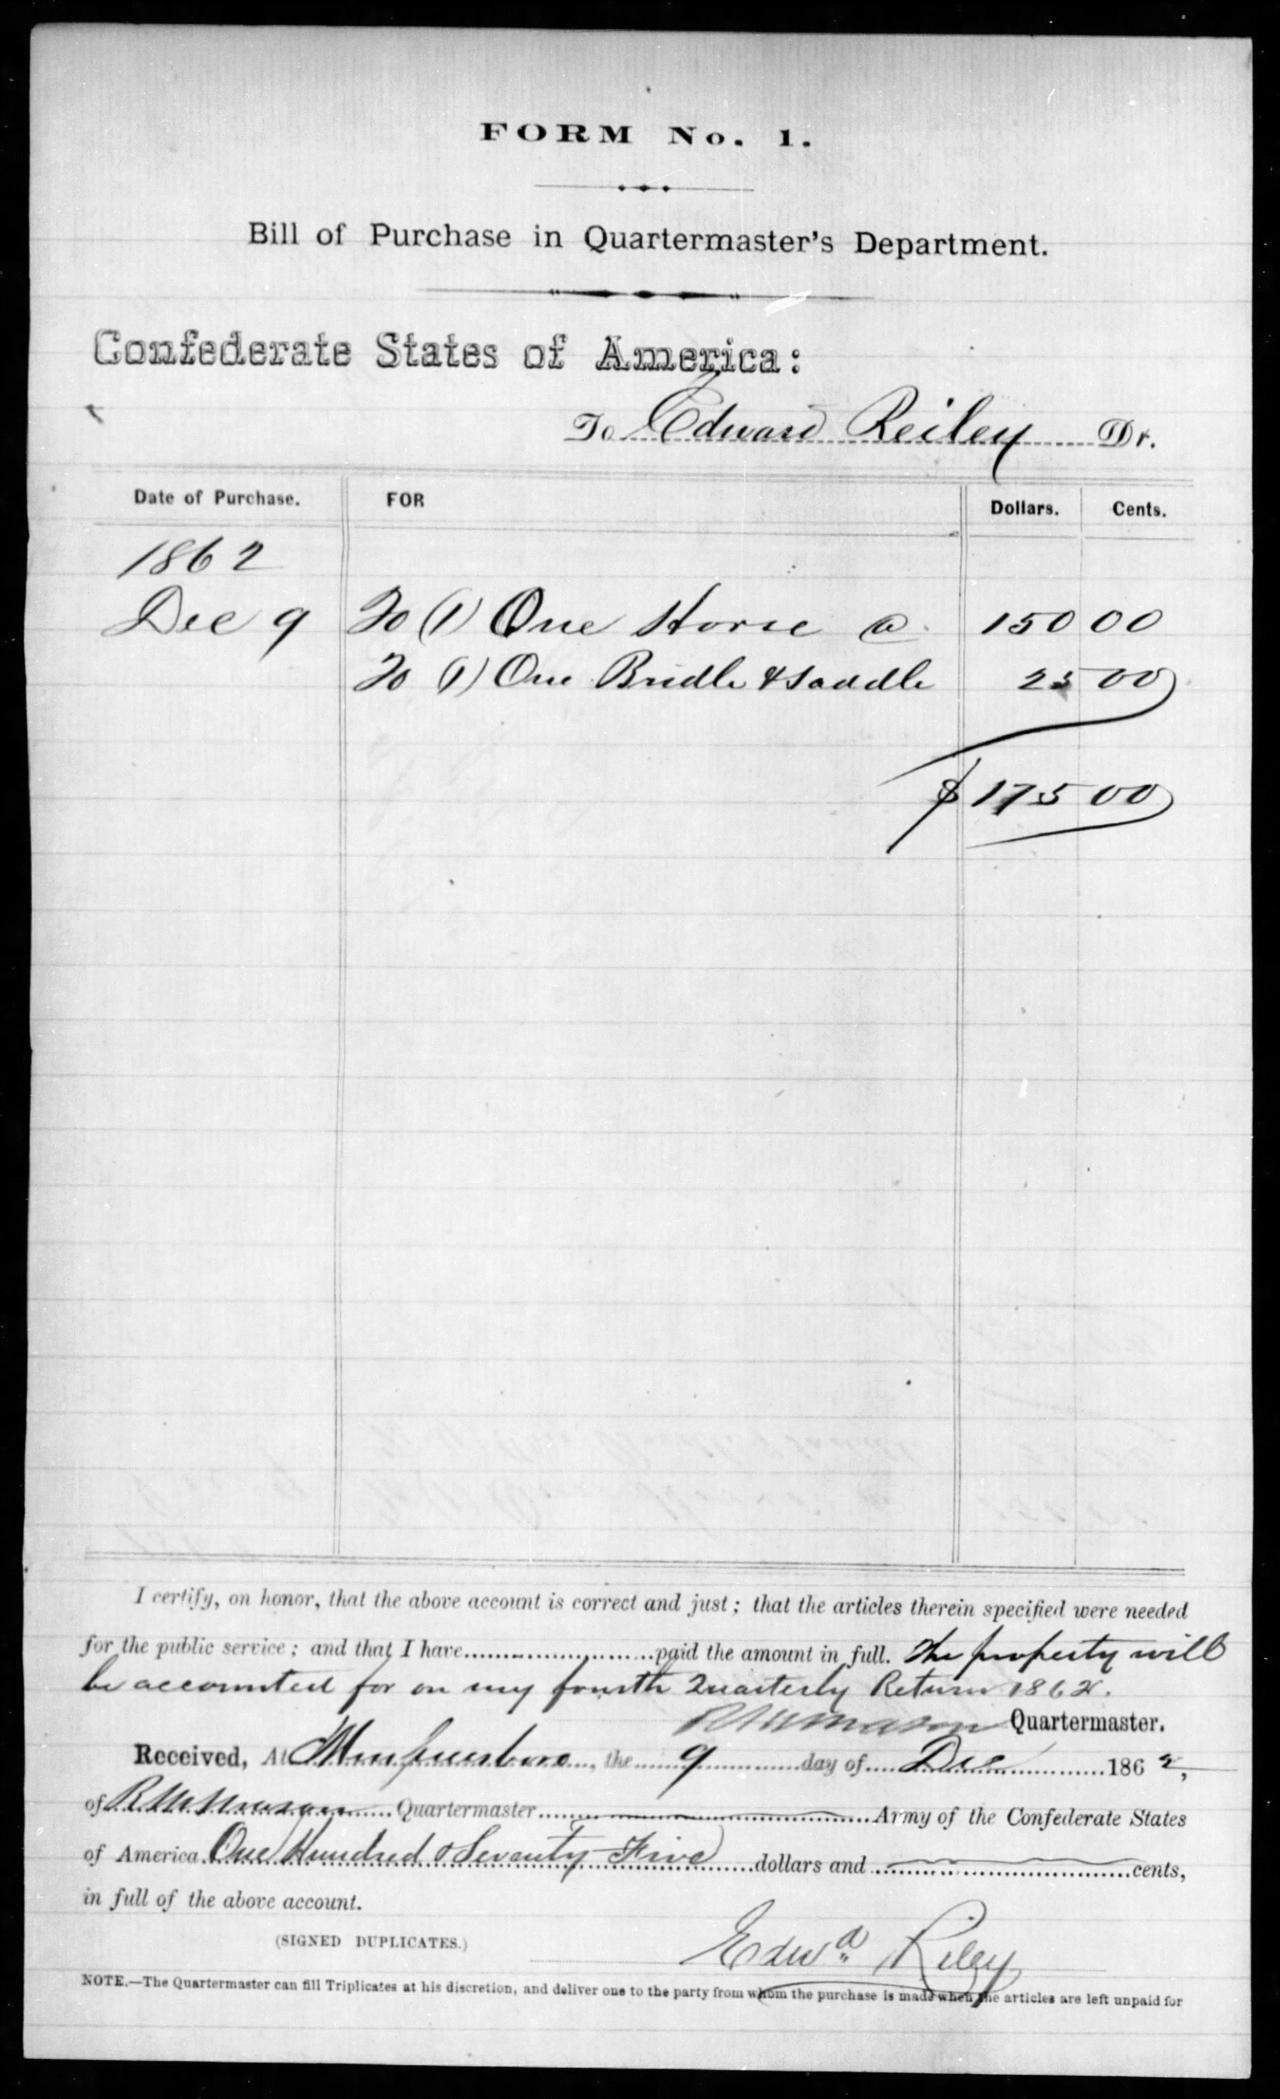 FORM No. 1.
Bill of Purchase in Quartermaster's Department.
Confederate States of America:
To Edward Reiley Dr.
Date of Purchase. FOR Dollars. Cents.
1862
Dec 9 To (1) One Horse @ 150 00
To (1) One Bridle & Saddle 25 00
$ 175 00
I certify, on honor, that the above account is correct and just; that the articles therein specified were needed
for the public service; and that I have paid the amount in full. The property will
be accounted for on my fourth Quarterly Return 1862.
R M Mason Quartermaster.
Received, At Murfreesboro, the 9 day of Dec 1862,
of R M Mason Quartermaster Army of the Confederate States
of America One Hundred & Seventy Five dollars and cents,
in full of the above account.
(SIGNED DUPLICATES.)
Edwd Riley
NOTE.—The Quartermaster can fill Triplicates at his discretion, and deliver one to the party from whom the purchase is made when the articles are left unpaid for